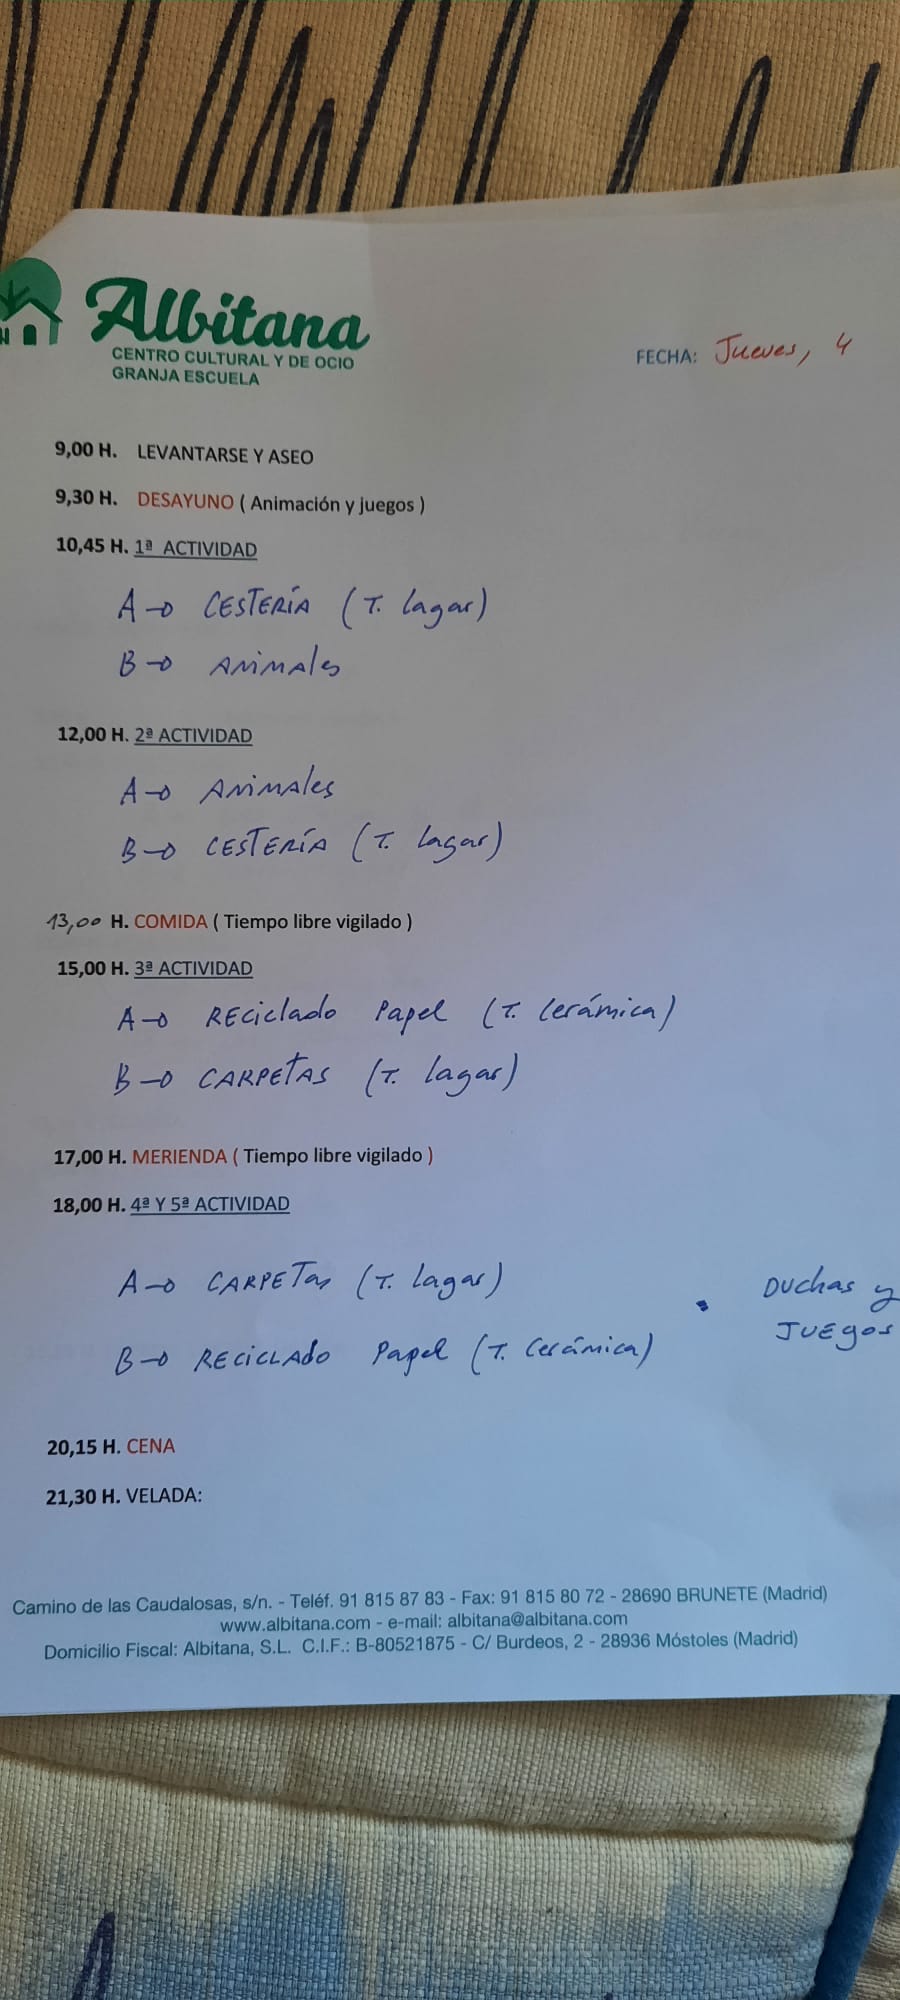 Albitana
CENTRO CULTURAL Y DE OCIO
GRANJA ESCUELA
FECHA: Jueves, 4
9,00 H. LEVANTARSE Y ASEO
9,30 H. DESAYUNO ( Animación y juegos )
10,45 H. 1ª ACTIVIDAD
A→ CESTERÍA (T. lagar)
B→ ANIMALES
12,00 H. 2ª ACTIVIDAD
A→ ANIMALES
B→ CESTERÍA (T. lagar)
13,00 H. COMIDA ( Tiempo libre vigilado )
15,00 H. 3ª ACTIVIDAD
A→ RECiclado Papel (T. Cerámica)
B→ CARPETAS (T. lagar)
17,00 H. MERIENDA ( Tiempo libre vigilado )
18,00 H. 4ª Y 5ª ACTIVIDAD
A→ CARPETAS (T. lagar)
B→ RECICLADO Papel (T. Cerámica)
• Duchas y
JUEGOS
20,15 H. CENA
21,30 H. VELADA:
Camino de las Caudalosas, s/n. - Teléf. 91 815 87 83 - Fax: 91 815 80 72 - 28690 BRUNETE (Madrid)
www.albitana.com - e-mail: albitana@albitana.com
Domicilio Fiscal: Albitana, S.L. C.I.F.: B-80521875 - C/ Burdeos, 2 - 28936 Móstoles (Madrid)